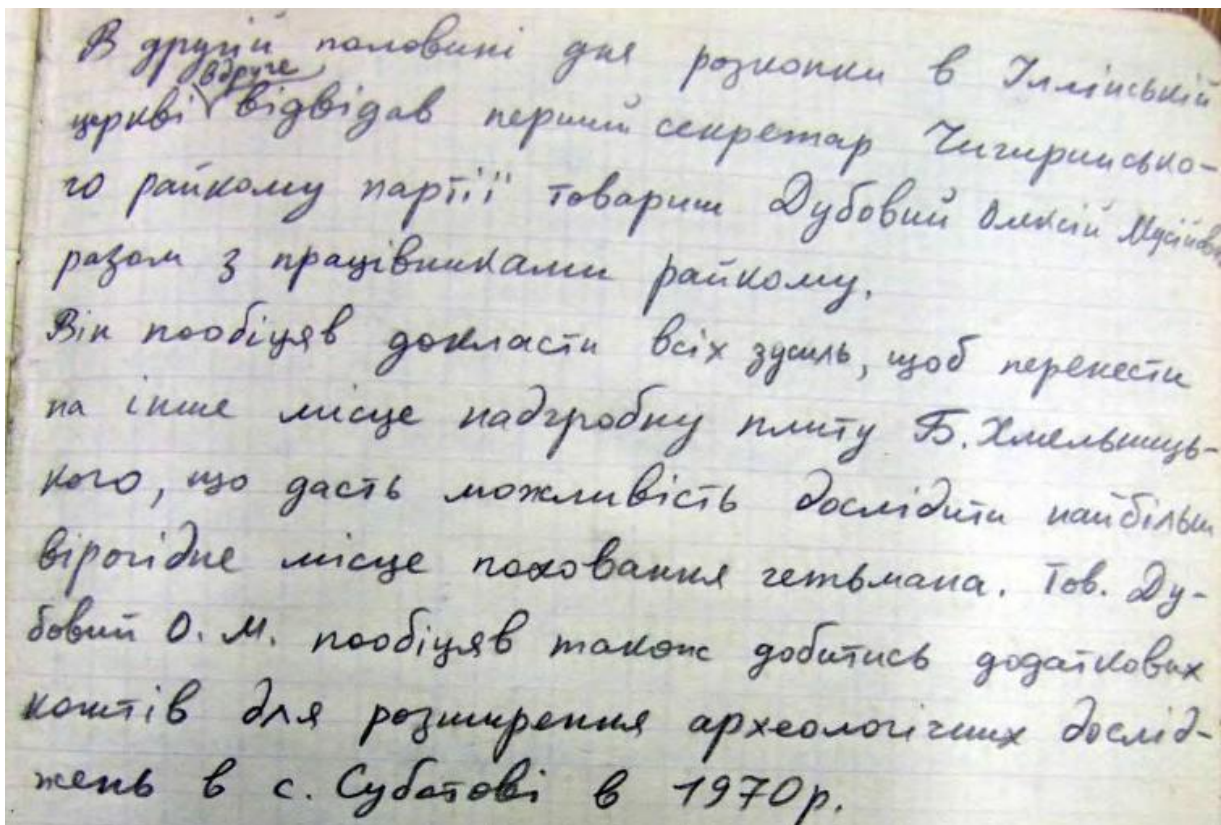 В другій половині дня розкопки в Іллінській
церкві вдруге відвідав перший секретар Чигиринсько-
го райкому партії товариш Дубовий Олексій Мусійович
разом з працівниками райкому.
Він пообіцяв докласти всіх зусиль, щоб перенести
на інше місце надгробну плиту Б. Хмельниць-
кого, що дасть можливість дослідити найбільш
вірогідне місце поховання гетьмана. Тов. Ду-
бовий О. М. пообіцяв також добитись додаткових
коштів для розширення археологічних дослід-
жень в с. Суботові в 1970 р.